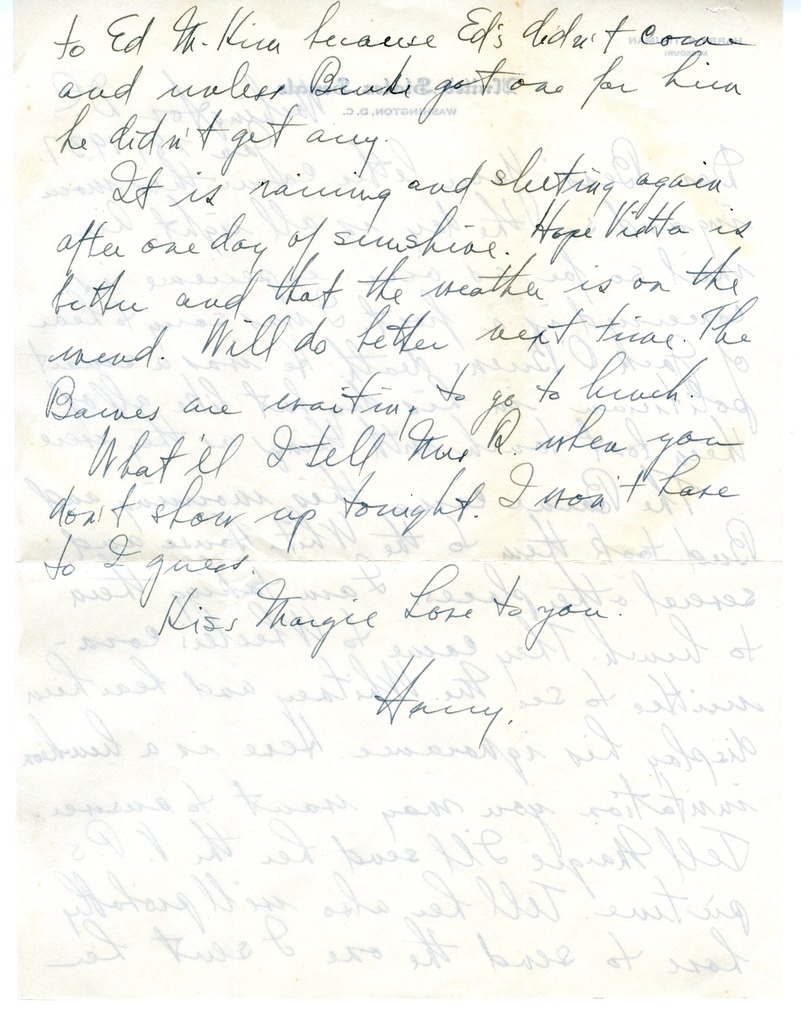 to Ed McKim because Ed's didn't come
and unless Burke got one for him
he didn't get any.
It is raining and sleeting again
after one day of sunshine. Hope Vietta is
better and that the weather is on the
mend. Will do better next time. The
Barnes are waiting to go to lunch.
What'll I tell Mrs R. when you
don't show up tonight. I won't have
to I guess.
Kiss Margie Love to you.
Harry.